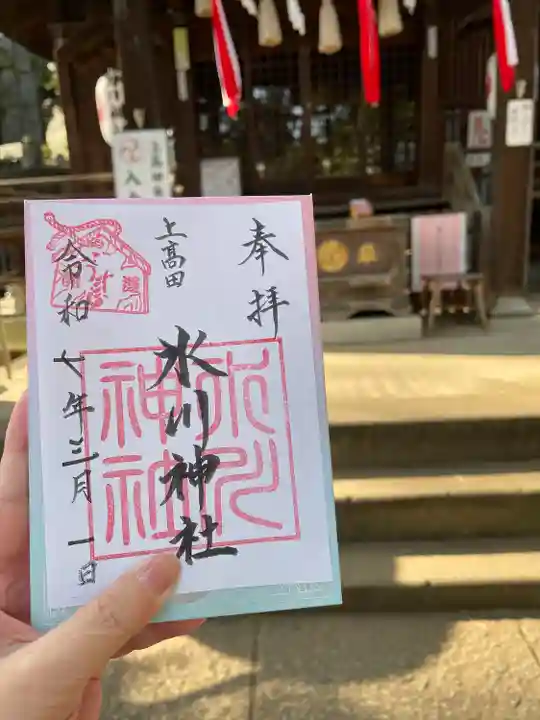 奉拝
上高田
氷川神社
令和七年三月一日
氷川
神社